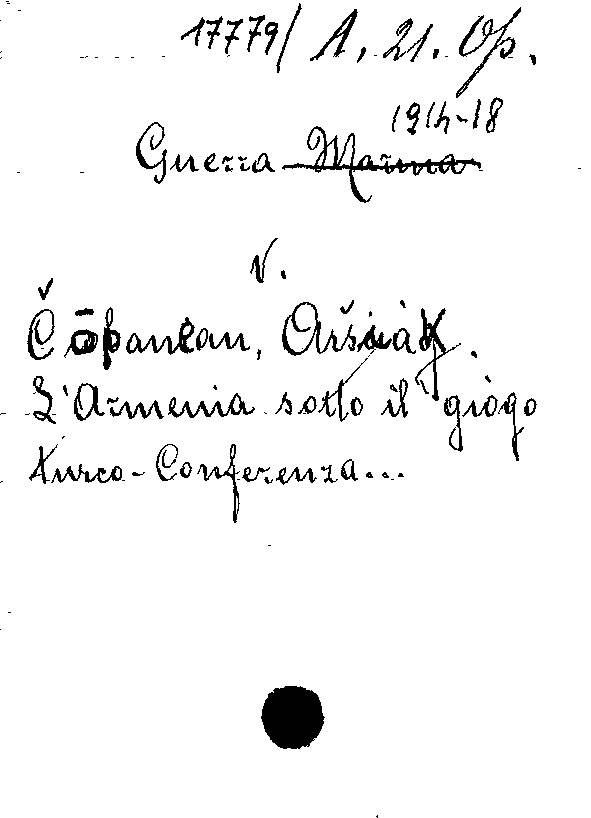 17779/ A. 21. Op.
1914-18
Guerra Marina
V.
Čōpanean, Aršak.
L'Armenia sotto il giògo
turco-Conferenza...